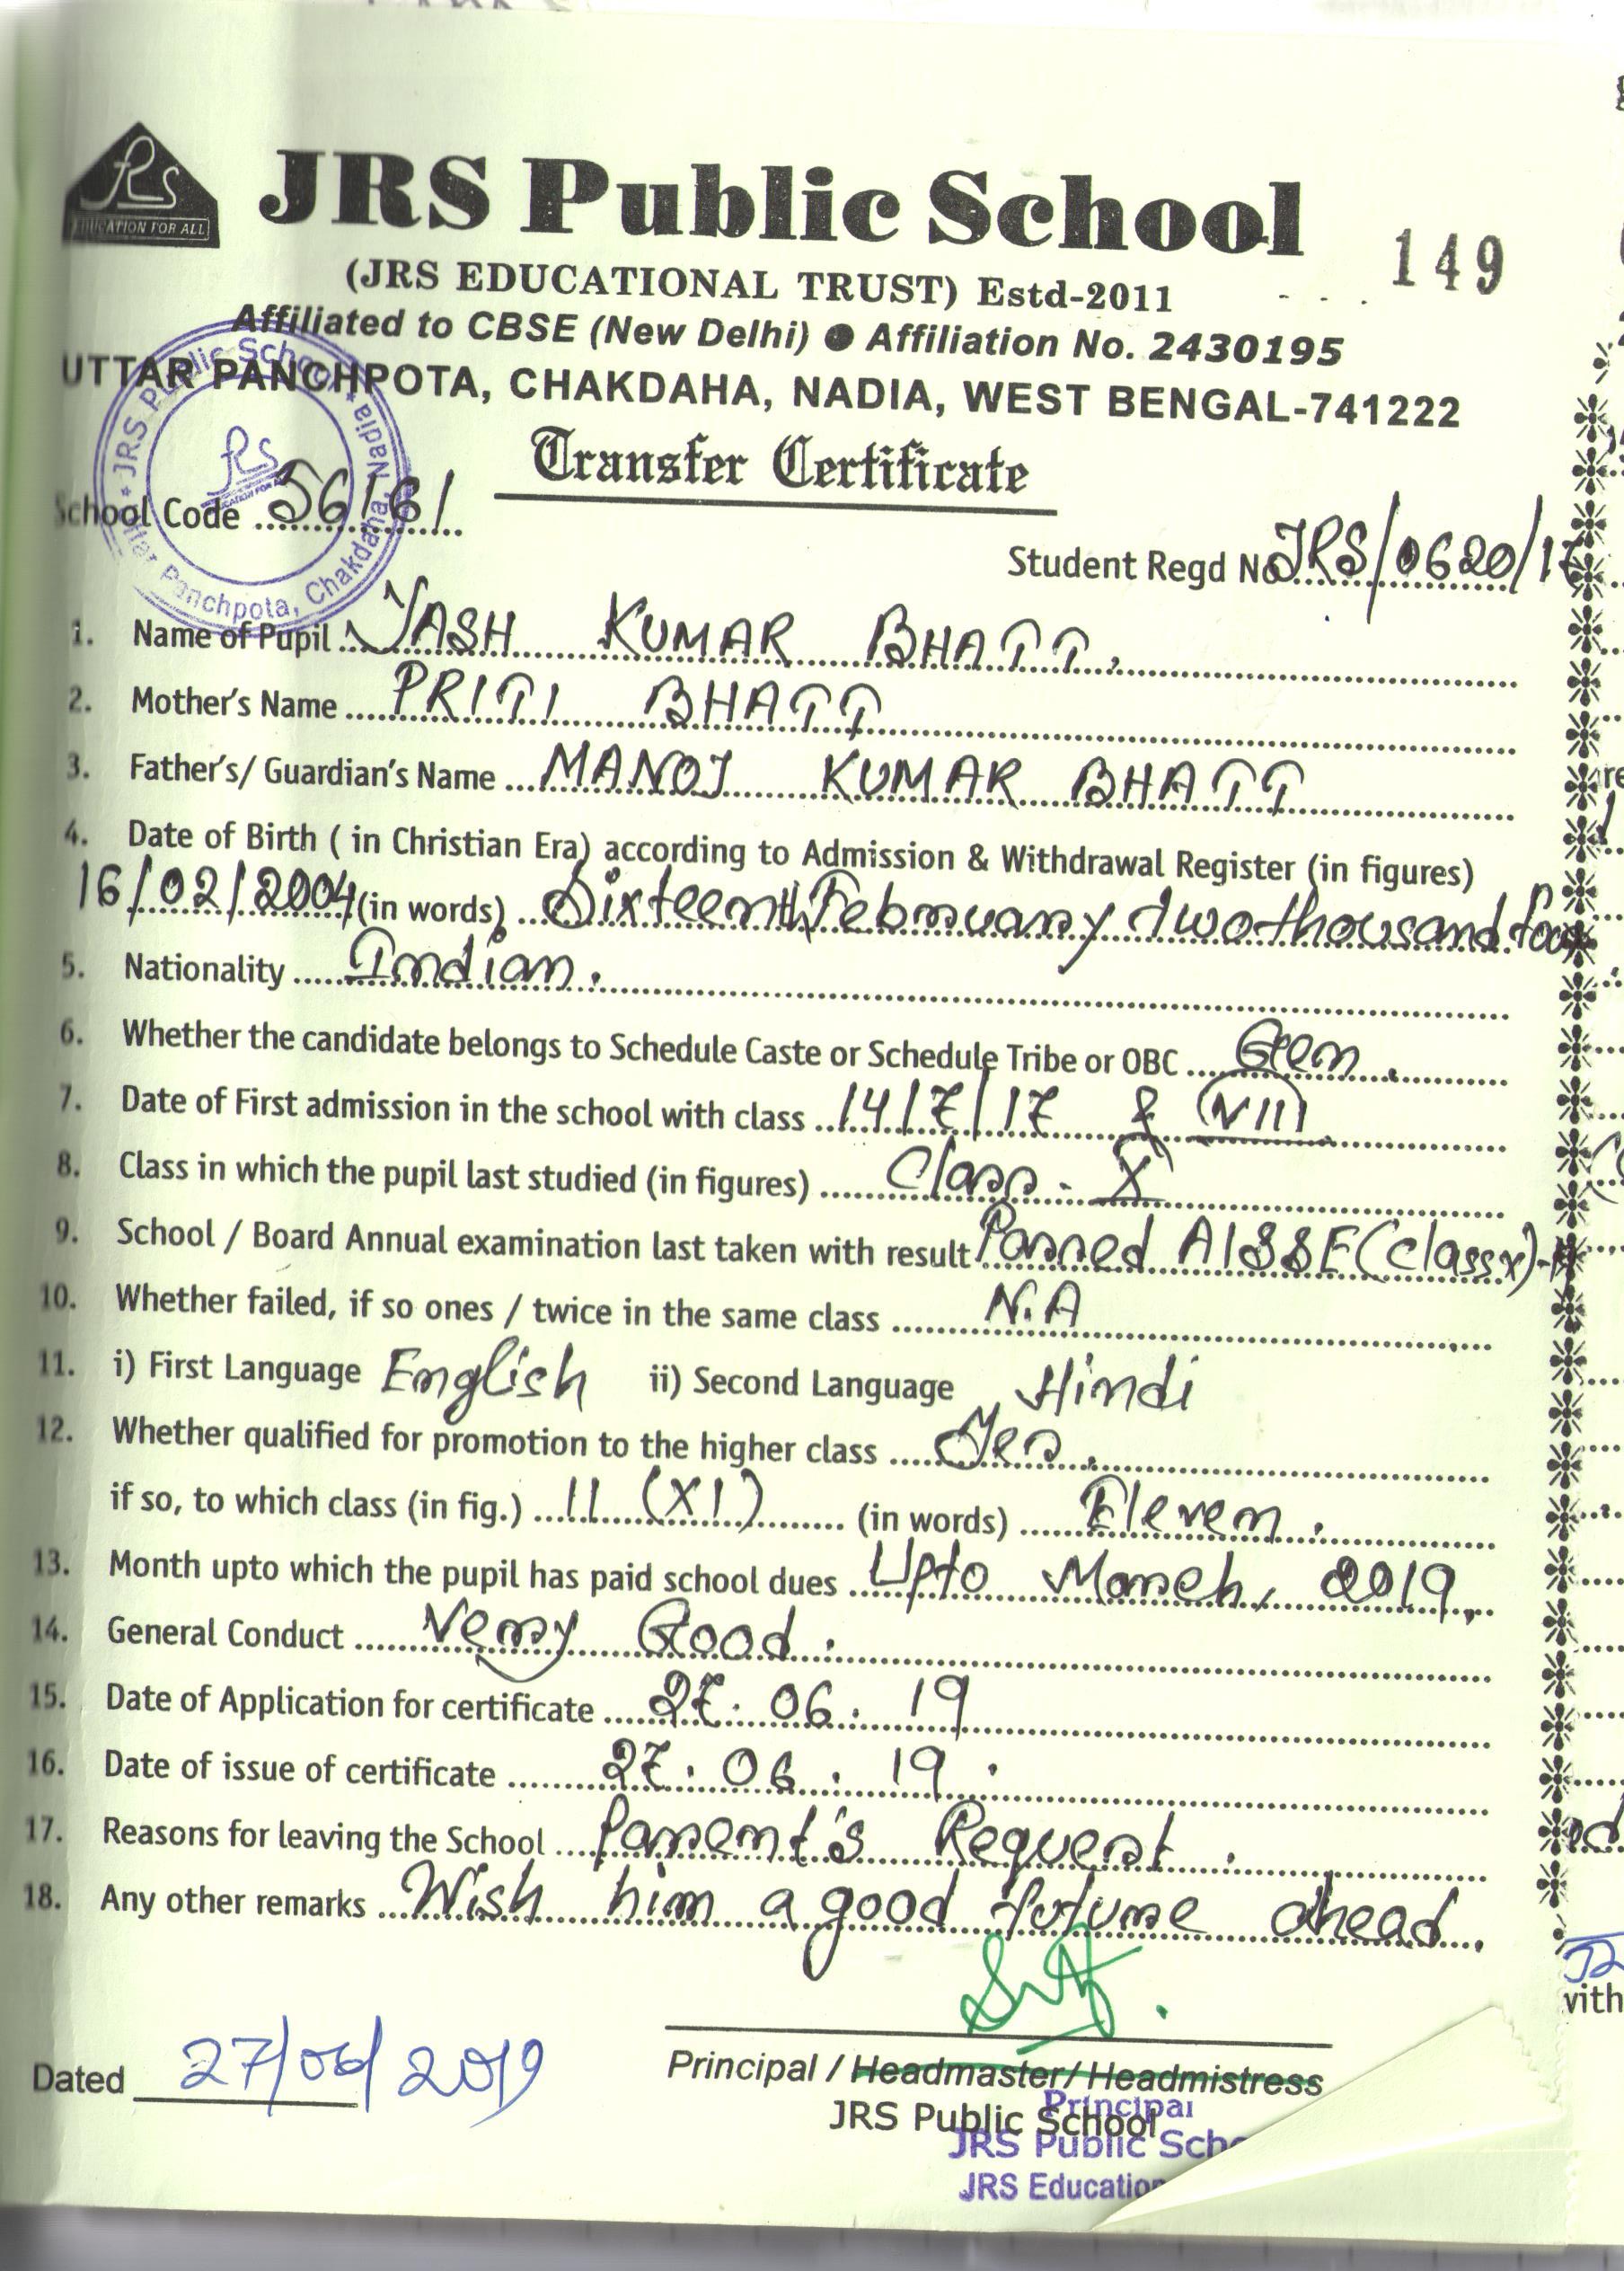 JRS
EDUCATION FOR ALL
JRS Public School
149
(JRS EDUCATIONAL TRUST) Estd-2011
Affiliated to CBSE (New Delhi) ● Affiliation No. 2430195
UTTAR PANCHPOTA, CHAKDAHA, NADIA, WEST BENGAL-741222
JRS Public School Uttar Panchpota, Chakdaha, Nadia
Transfer Certificate
School Code 56161
Student Regd No JRS/0620/17
1. Name of Pupil YASH KUMAR BHATT.
2. Mother's Name PRITI BHATT
3. Father's/ Guardian's Name MANOJ KUMAR BHATT
4. Date of Birth ( in Christian Era) according to Admission & Withdrawal Register (in figures)
16/02/2004 (in words) Sixteenth February two thousand four
5. Nationality Indian.
6. Whether the candidate belongs to Schedule Caste or Schedule Tribe or OBC Gen.
7. Date of First admission in the school with class 14/7/17 & (VIII)
8. Class in which the pupil last studied (in figures) Class - X
9. School / Board Annual examination last taken with result Passed AISSE (class x)
10. Whether failed, if so ones / twice in the same class N.A
11. i) First Language English ii) Second Language Hindi
12. Whether qualified for promotion to the higher class Yes.
if so, to which class (in fig.) 11 (XI) (in words) Eleven.
13. Month upto which the pupil has paid school dues Upto March, 2019.
14. General Conduct Very Good.
15. Date of Application for certificate 27.06.19
16. Date of issue of certificate 27.06.19.
17. Reasons for leaving the School Parent's Request.
18. Any other remarks Wish him a good future ahead.
Dated 27/06/2019
Principal / Headmaster/ Headmistress
JRS Public School
Principal
JRS Public
JRS